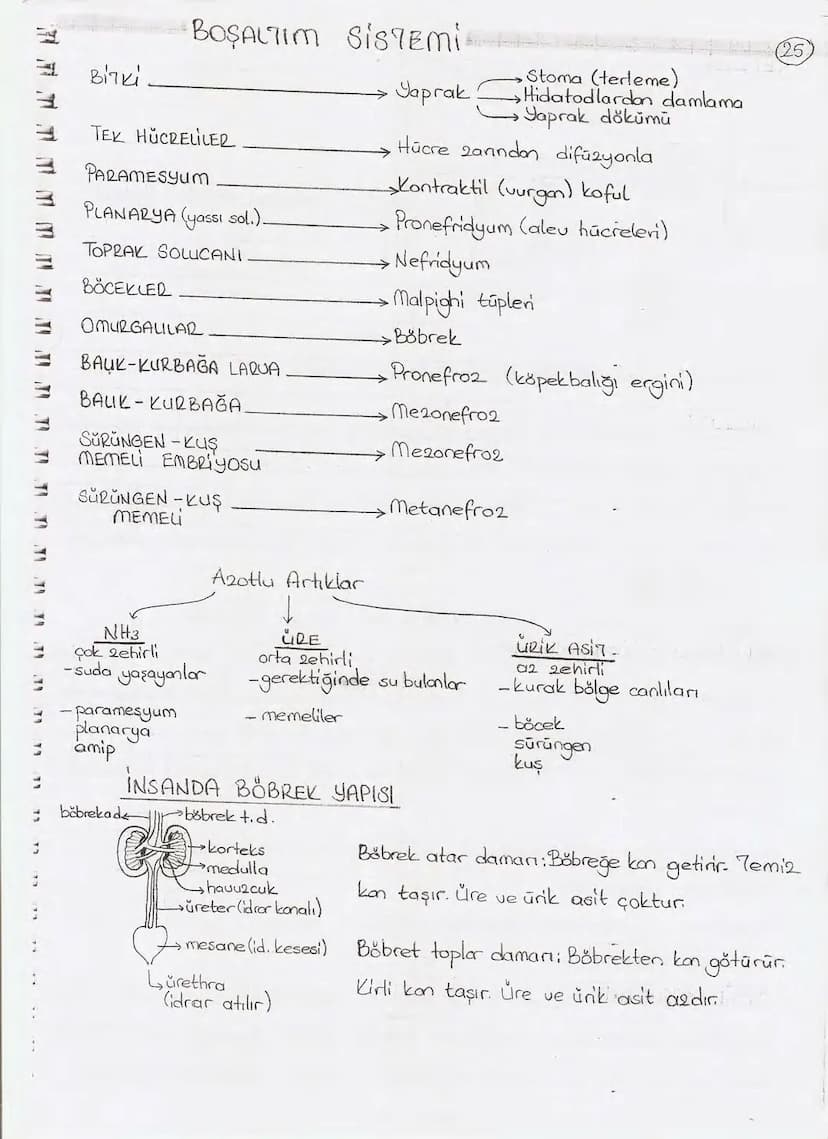 BOŞALTIM SİSTEMİ
25
BİTKİ → Yaprak → Stoma (terleme)
→ Hidatodlardan damlama
→ Yaprak dökümü
TEK HÜCRELİLER → Hücre zarından difüzyonla
PARAMESYUM → Kontraktil (vurgan) koful
PLANARYA (yassı sol.) → Pronefridyum (alev hücreleri)
TOPRAK SOLUCANI → Nefridyum
BÖCEKLER → Malpighi tüpleri
OMURGALILAR → Böbrek
BALIK-KURBAĞA LARVA → Pronefroz (köpekbalığı ergini)
BALIK - KURBAĞA → Mezonefroz
SÜRÜNGEN - KUŞ
MEMELİ EMBRİYOSU → Mezonefroz
SÜRÜNGEN - KUŞ
MEMELİ → Metanefroz
Azotlu Artıklar
NH3
çok zehirli
- suda yaşayanlar
- paramesyum
planarya
amip
ÜRE
orta zehirli
- gerektiğinde su bulanlar
- memeliler
ÜRİK ASİT
az zehirli
- kurak bölge canlıları
- böcek
sürüngen
kuş
İNSANDA BÖBREK YAPISI
böbrek a.d.
böbrek t.d.
korteks
medulla
havuzcuk
üreter (idrar kanalı)
mesane (id. kesesi)
ürethra
(idrar atılır)
Böbrek atar damarı: Böbreğe kan getirir. Temiz
kan taşır. Üre ve ürik asit çoktur.
Böbret toplar damarı; Böbrekten kan götürür.
Kirli kan taşır. Üre ve ürik asit azdır.